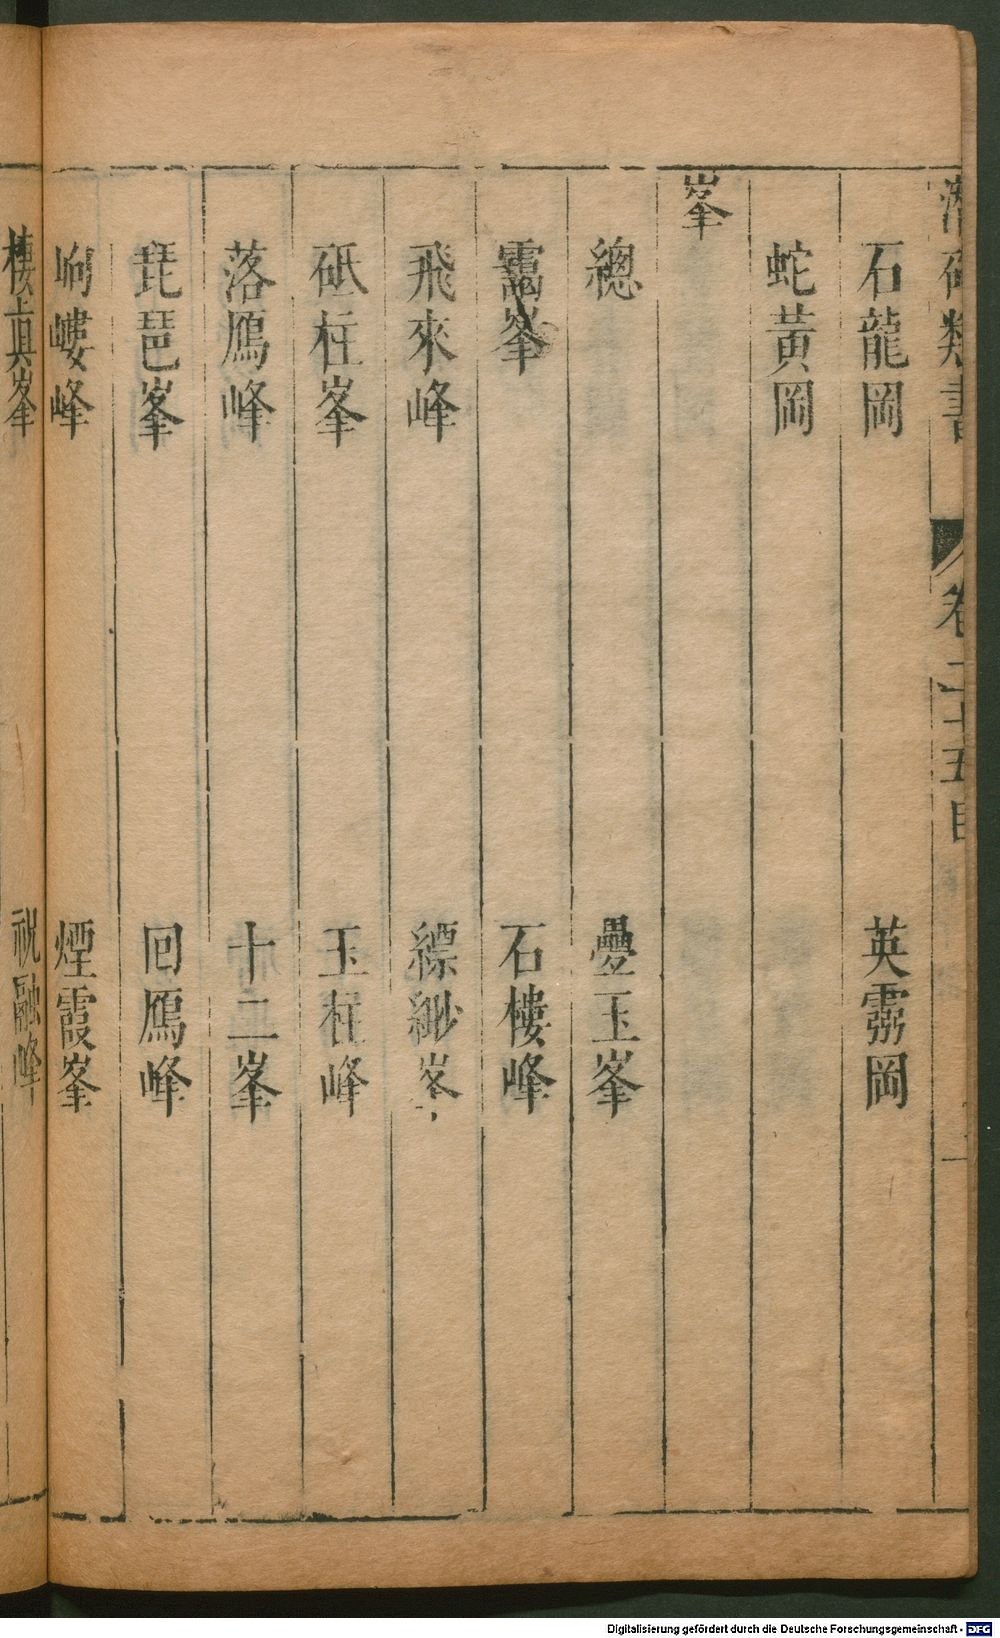 潛確類書 卷二十五目
石龍岡 英靈岡
蛇黃岡
峯
總 疊玉峯
靄峯 石樓峰
飛來峰 縹緲峯
砥柱峯 玉柱峰
落鴈峰 十二峯
琵琶峯 回鴈峰
岣嶁峰 煙霞峯
棲真峯 祝融峰
Digitalisierung gefördert durch die Deutsche Forschungsgemeinschaft - DFG